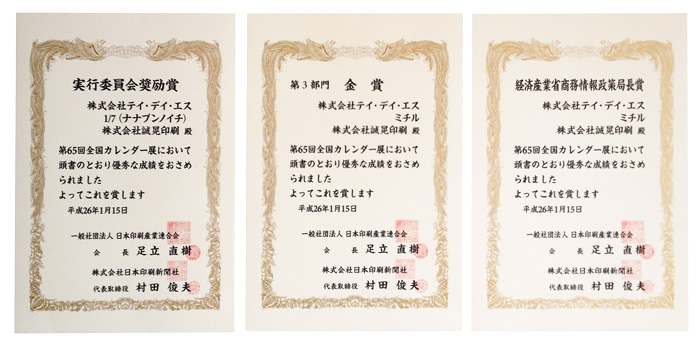 実行委員会奨励賞
株式会社テイ・デイ・エス
1/7（ナナブンノイチ）
株式会社誠晃印刷 殿
第65回全国カレンダー展において
頭書のとおり優秀な成績をおさめ
られました
よってこれを賞します
平成26年1月15日
一般社団法人 日本印刷産業連合会
会長 足立 直樹
株式会社日本印刷新聞社
代表取締役 村田 俊夫
第3部門 金賞
株式会社テイ・デイ・エス
ミチル
株式会社誠晃印刷 殿
第65回全国カレンダー展において
頭書のとおり優秀な成績をおさめ
られました
よってこれを賞します
平成26年1月15日
一般社団法人 日本印刷産業連合会
会長 足立 直樹
株式会社日本印刷新聞社
代表取締役 村田 俊夫
経済産業省商務情報政策局長賞
株式会社テイ・デイ・エス
ミチル
株式会社誠晃印刷 殿
第65回全国カレンダー展において
頭書のとおり優秀な成績をおさめ
られました
よってこれを賞します
平成26年1月15日
一般社団法人 日本印刷産業連合会
会長 足立 直樹
株式会社日本印刷新聞社
代表取締役 村田 俊夫